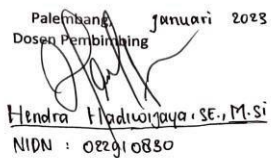 Palembang, Januari 2023
Dosen Pembimbing
Hendra Hadiwijaya, SE., M.Si
NIDN : 0229108302